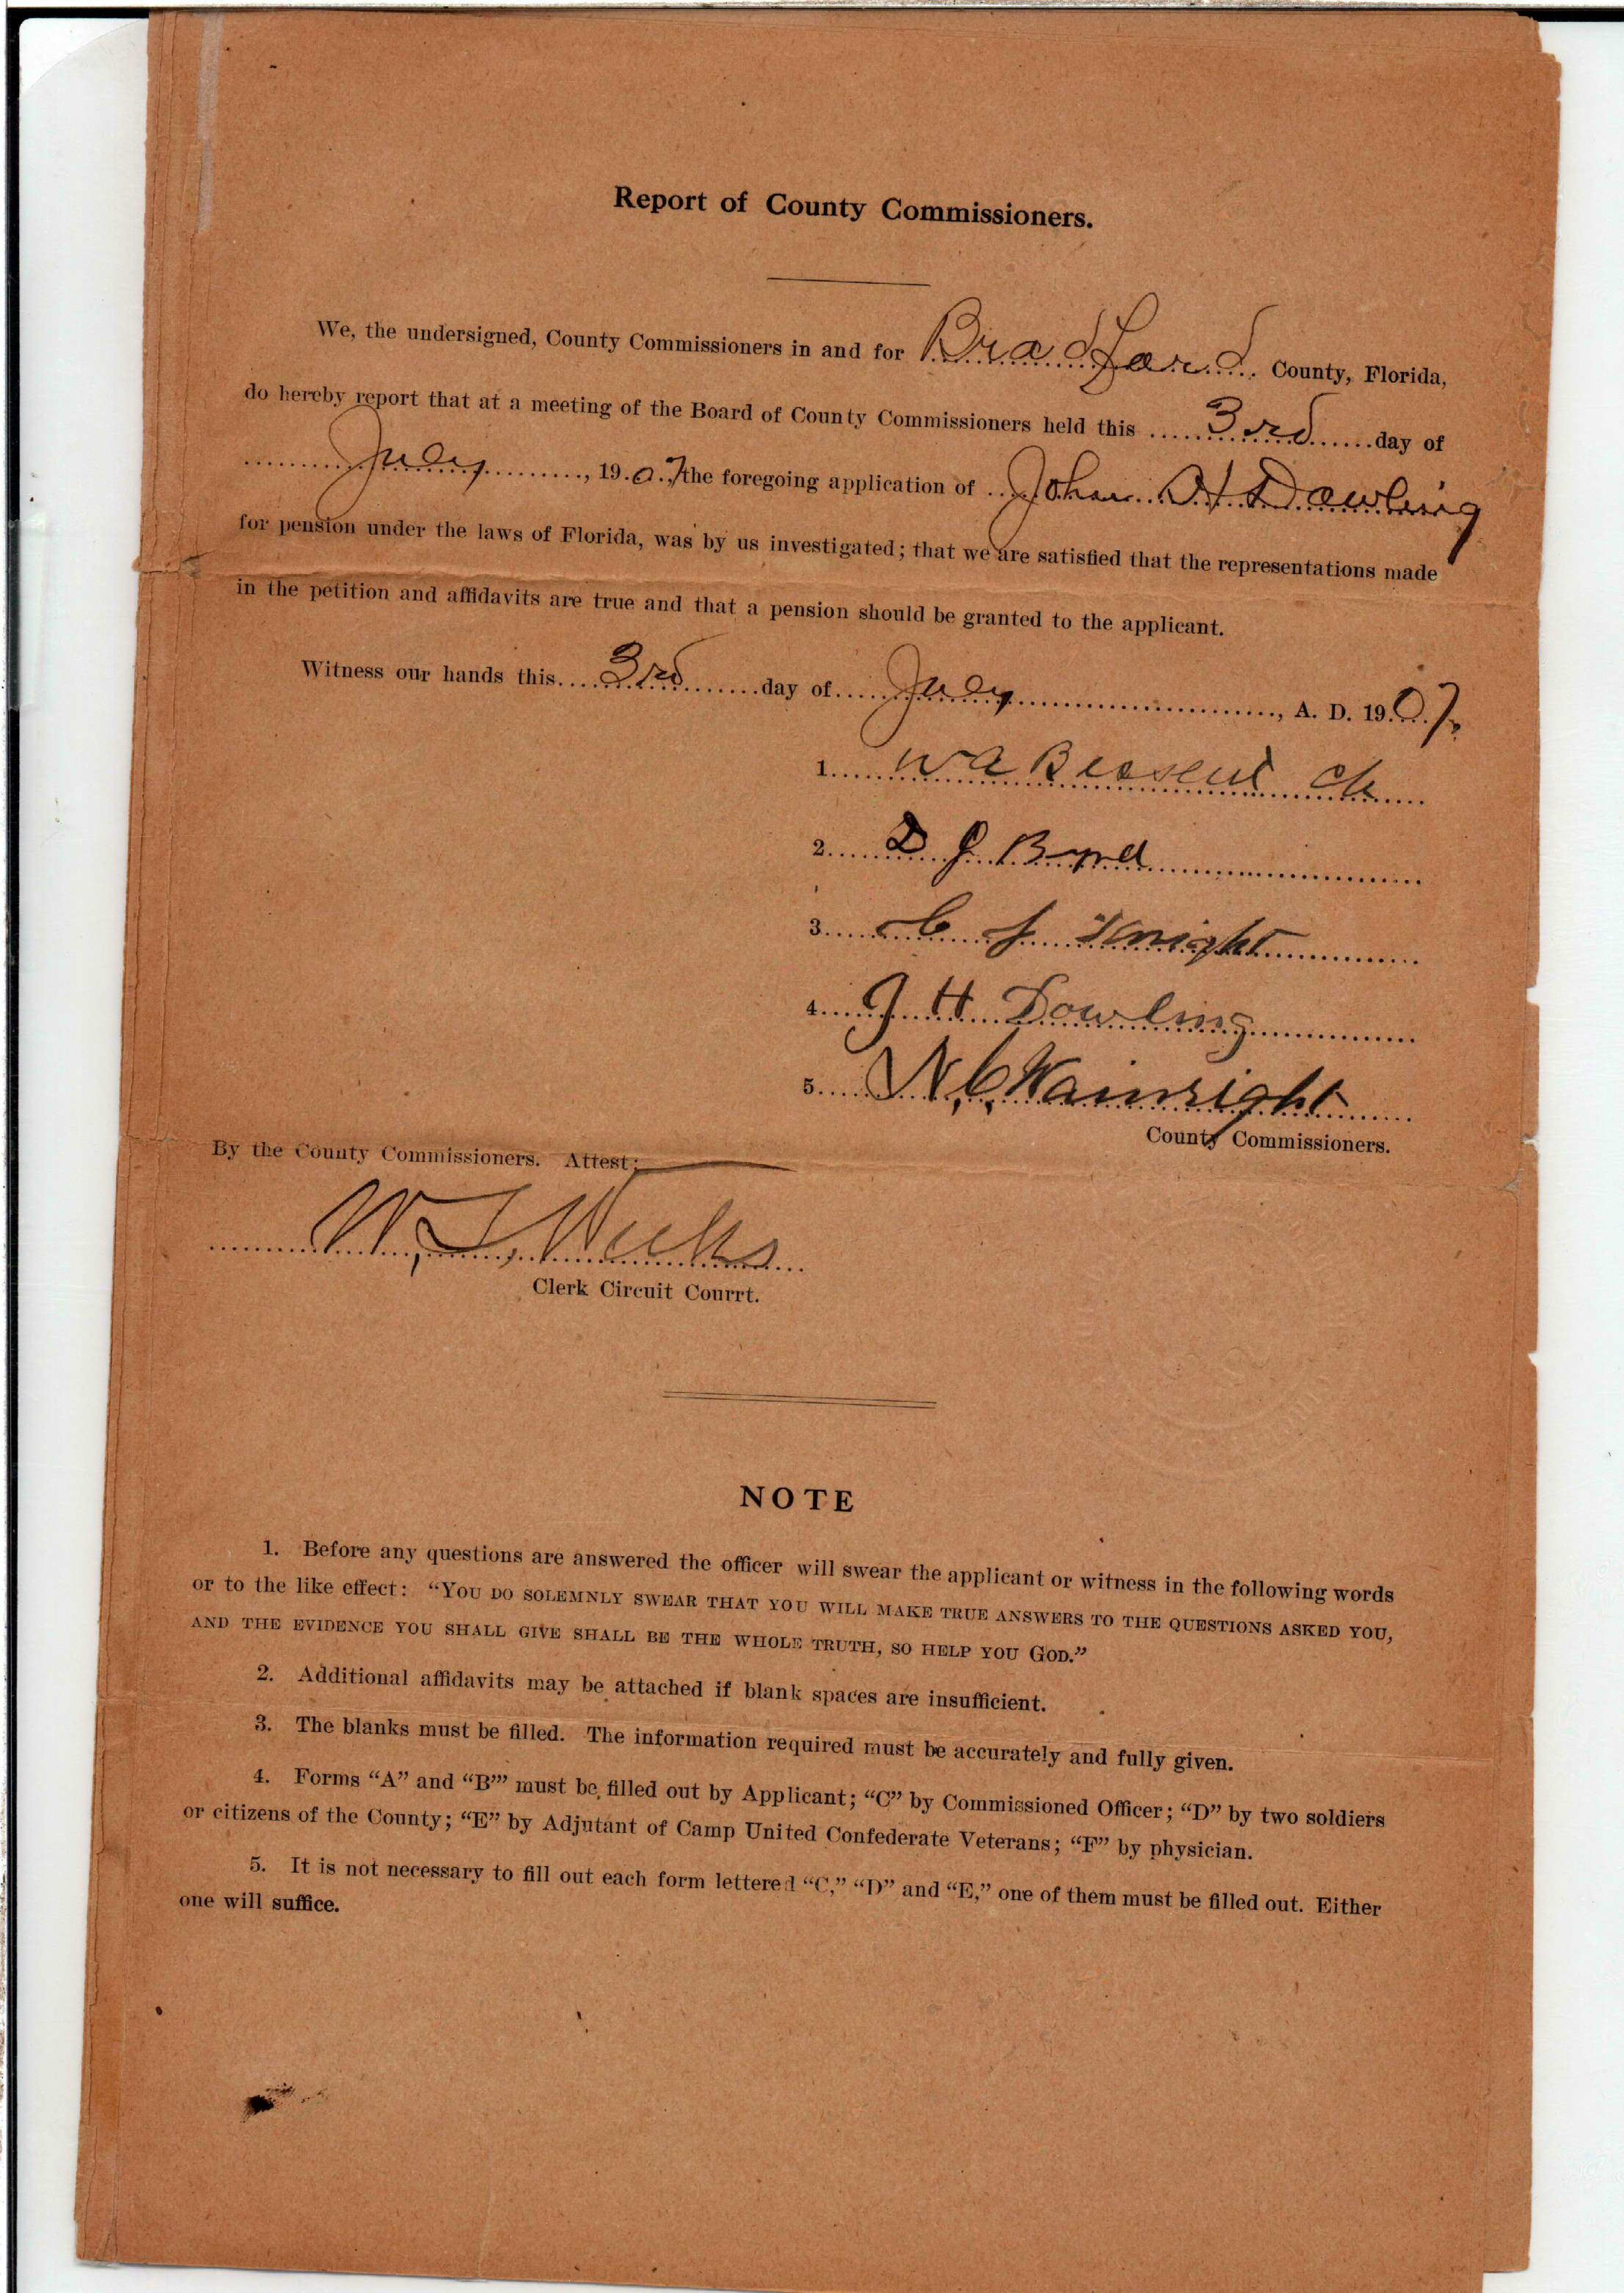 Report of County Commissioners.
We, the undersigned, County Commissioners in and for Bradford County, Florida,
do hereby report that at a meeting of the Board of County Commissioners held this 3rd day of
July, 1907 the foregoing application of John H Dowling
for pension under the laws of Florida, was by us investigated; that we are satisfied that the representations made
in the petition and affidavits are true and that a pension should be granted to the applicant.
Witness our hands this 3rd day of July, A. D. 1907.
1. W A
2. D J Byrd
3. C S Knight
4. J H Dowling
5. N. C. Wainright
County Commissioners.
By the County Commissioners. Attest:
W. T. Weeks
Clerk Circuit Courrt.
NOTE
1. Before any questions are answered the officer will swear the applicant or witness in the following words
or to the like effect: “YOU DO SOLEMNLY SWEAR THAT YOU WILL MAKE TRUE ANSWERS TO THE QUESTIONS ASKED YOU,
AND THE EVIDENCE YOU SHALL GIVE SHALL BE THE WHOLE TRUTH, SO HELP YOU GOD.”
2. Additional affidavits may be attached if blank spaces are insufficient.
3. The blanks must be filled. The information required must be accurately and fully given.
4. Forms “A” and “B”’ must be filled out by Applicant; “C” by Commissioned Officer; “D” by two soldiers
or citizens of the County; “E” by Adjutant of Camp United Confederate Veterans; “F” by physician.
5. It is not necessary to fill out each form lettered “C,” “D” and “E,” one of them must be filled out. Either
one will suffice.